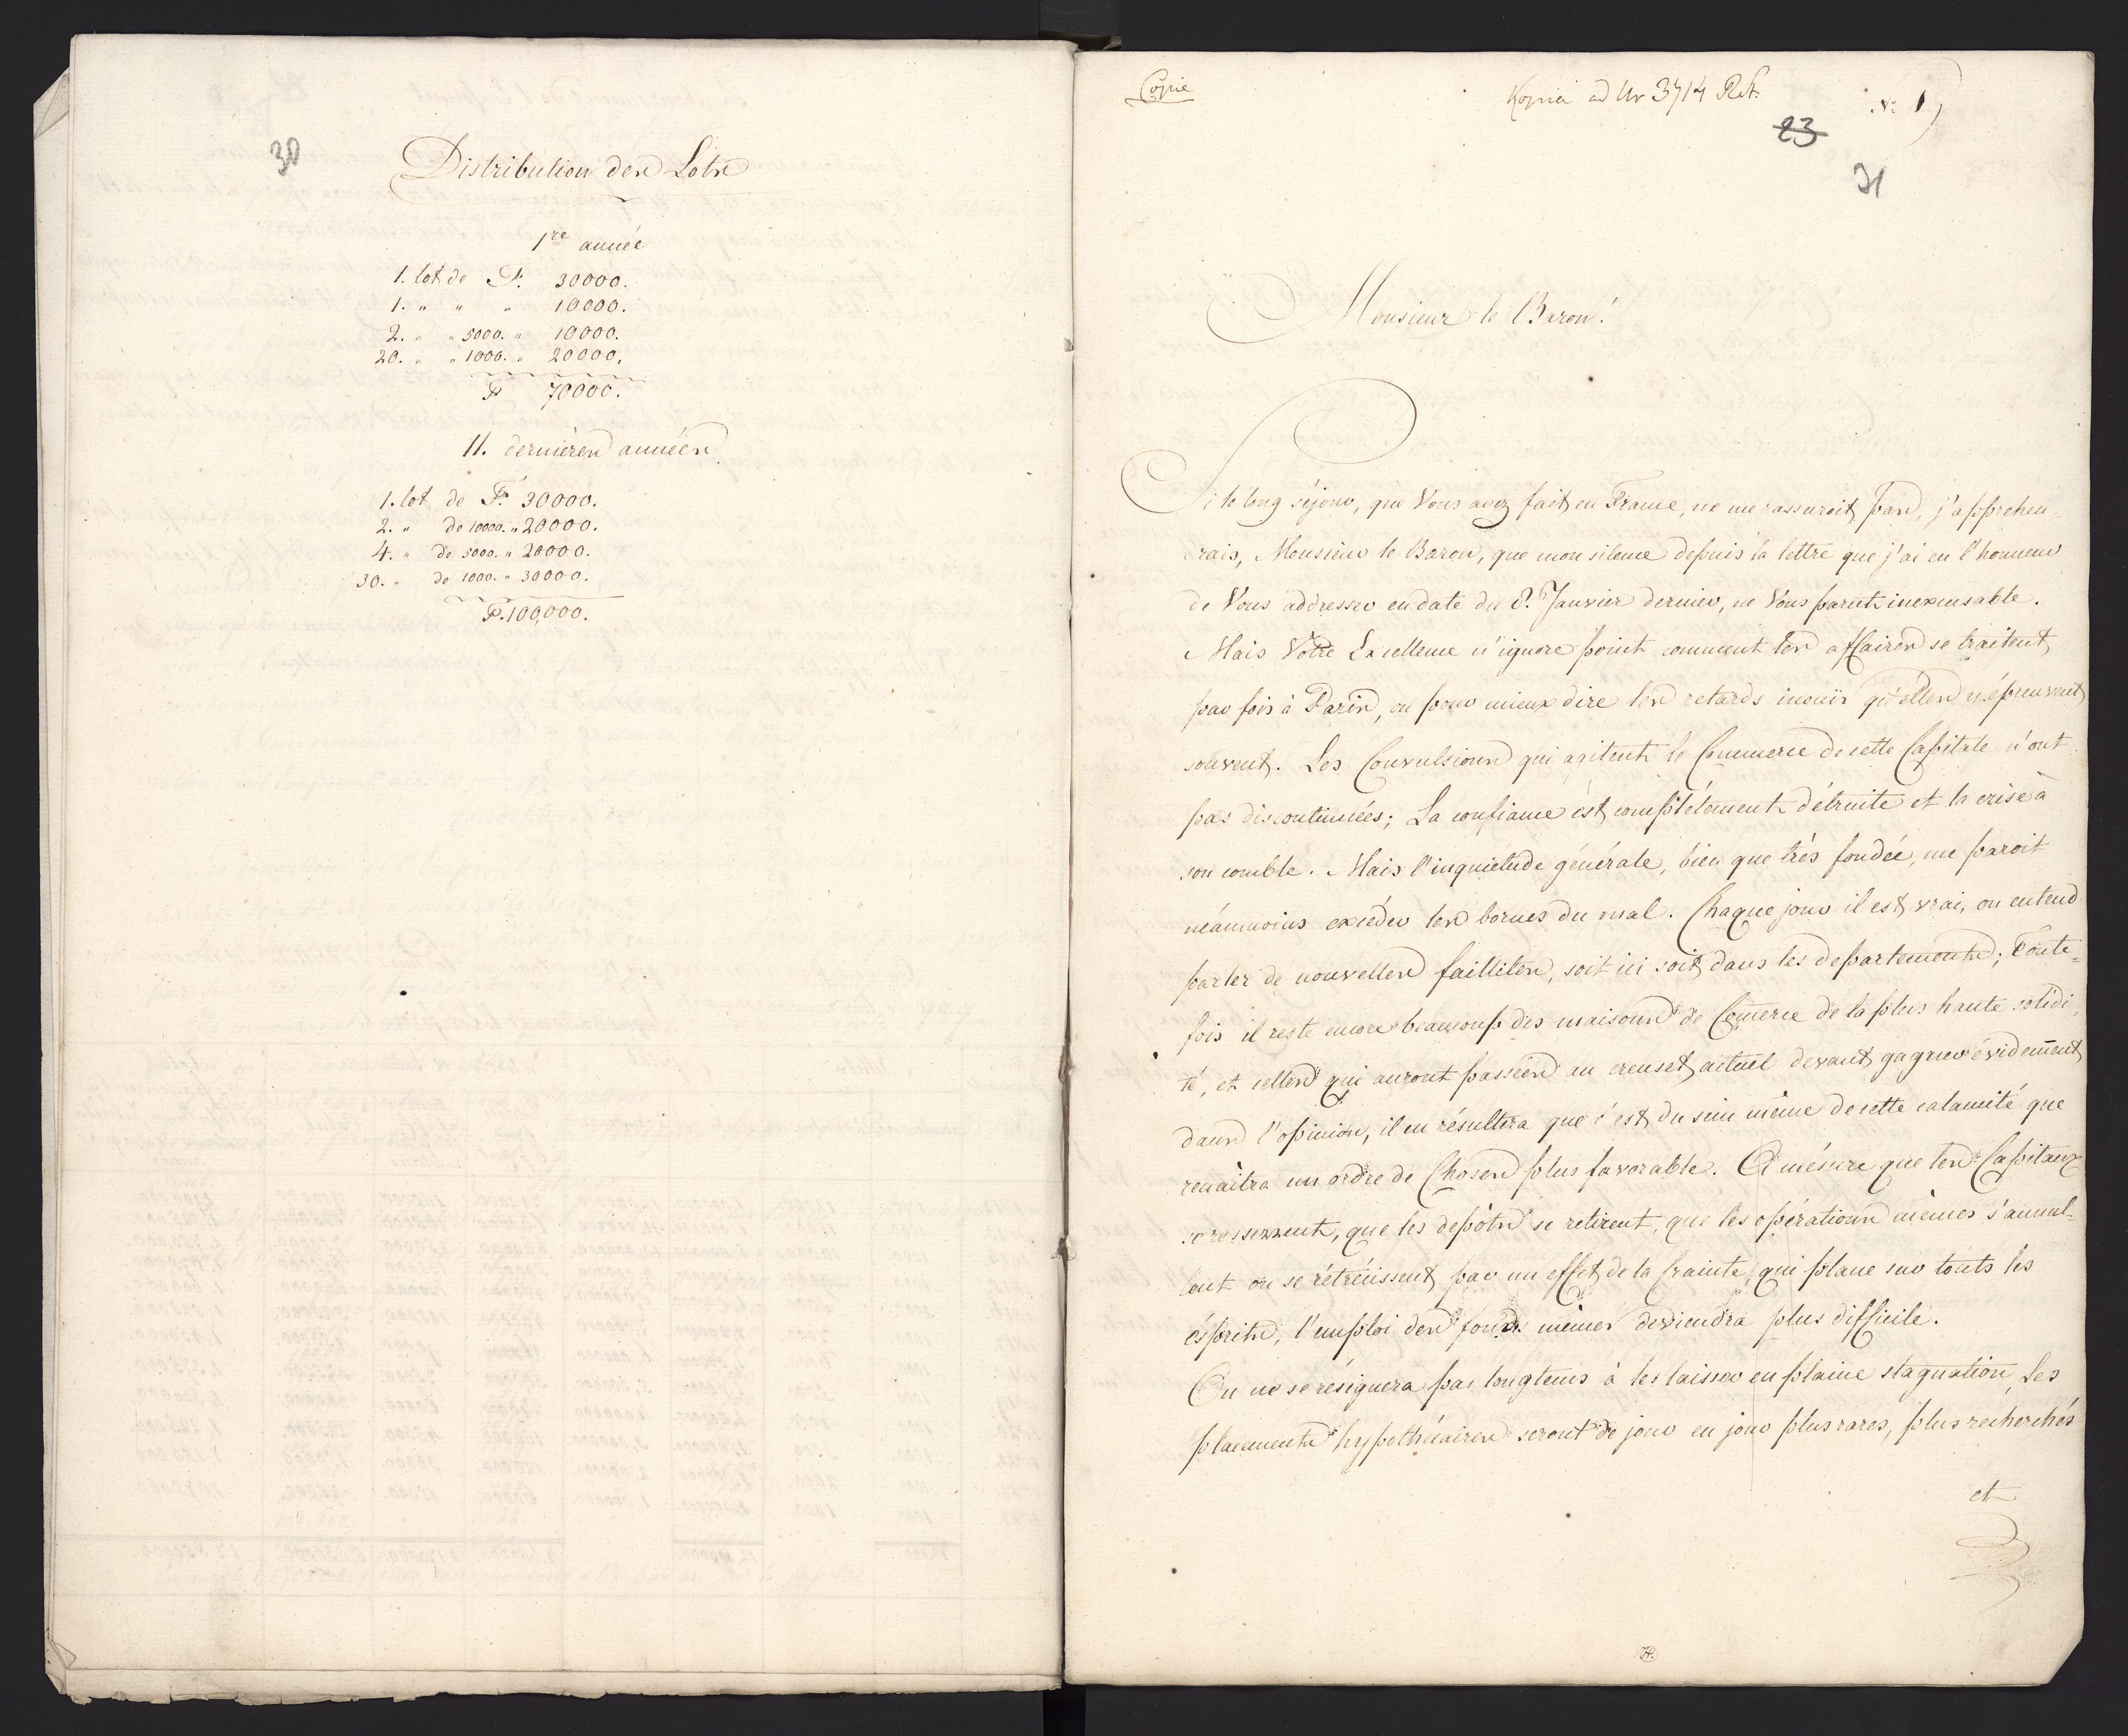 30
Distribution des Lots
1re année
1. lot de F. 30000.
1. " " " 10000.
2. " " 5000. " 10000.
20. " " 1000. " 20000.
F 70000.
11. dernières années
1. lot de F. 30000.
2. " de 10000. " 20000.
4. " de 5000. " 20000.
30. " de 1000. " 30000.
F. 100,000.
Copie
Kopia ad Nr 3714 R.S.
N: 1)
23
31
Monsieur le Baron!
Si le long séjour, que Vous avez fait en France, ne me rassuroit pas, j'apprehen-
drais, Monsieur le Baron, que mon silence depuis la lettre que j'ai eu l'honneur
de Vous addresser en date du 8. Janvier dernier, ne Vous parut inexcusable.
Mais Votre Excellence n'ignore point comment les affaires se traitent
par fois à Paris, ou pour mieux dire les retards inouïs qu'elles y épreuvent
souvent. Les Convulsions qui agitent le Commerce de cette Capitale n'ont
pas discontinuées; La confiance est complétement détruite et la crise à
son comble. Mais l'inquietude générale, bien que très fondée, me paroit
néanmoins excéder les bornes du mal. Chaque jour il est vrai, on entend
parler de nouvelles faillites, soit ici soit dans les departements; Toute=
fois il reste encore beaucoup des maisons de Comerce de la plus haute solidi,
té, et celles qui auront passées au creuset actuel devant gagner évidement
dans l'opinion, il en résultera que c'est du sein même de cette calamité que
renaîtra un ordre de Choses plus favorable. A mésure que les Capitaux
se resserrent, que les depôts se retirent, que les opérations mèmes s'annul=
lent ou se rétrécissent par un effet de la crainte, qui plane sur touts les
ésprits, l'emploi des fonds mèmes deviendra plus difficile.
On ne se résignera pas longtems à les laisser en plaine stagnation, Les
placements hypothécaires seront de jour en jour plus rares, plus recherchés
et